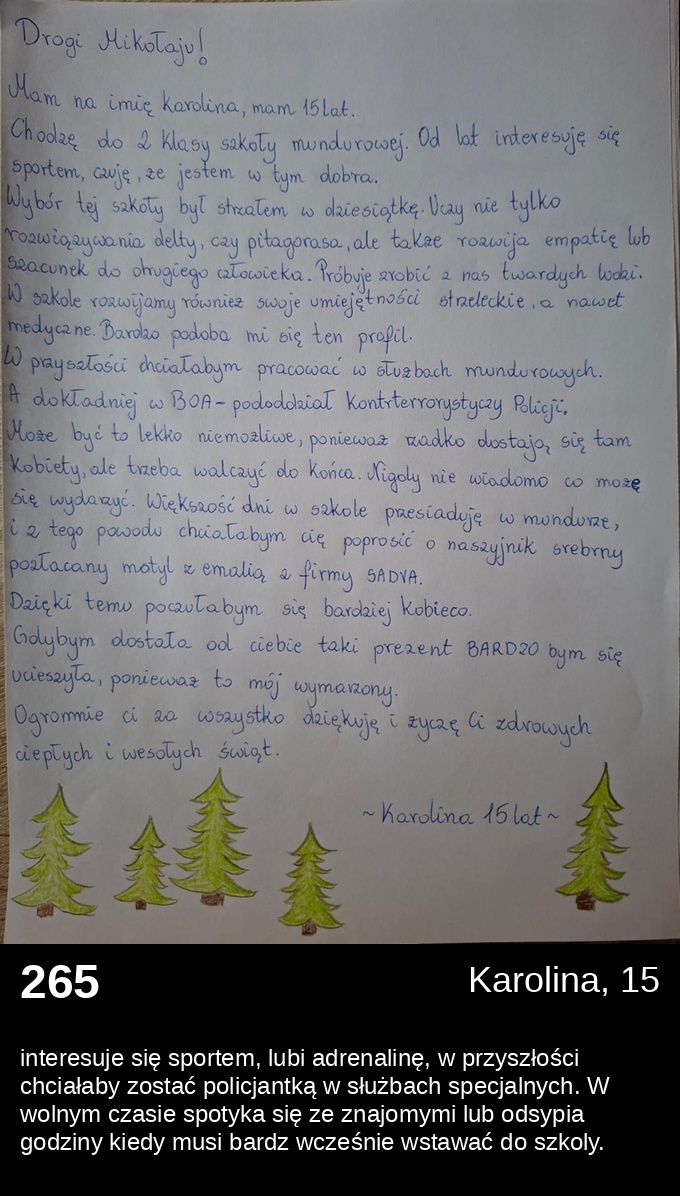 Drogi Mikołaju!
Mam na imię Karolina, mam 15 lat.
Chodzę do 2 klasy szkoły mundurowej. Od lat interesuję się
sportem, czuję, że jestem w tym dobra.
Wybór tej szkoły był strzałem w dziesiątkę. Uczy nie tylko
rozwiązywania delty, czy pitagorasa, ale także rozwija empatię lub
szacunek do drugiego człowieka. Próbuje zrobić z nas twardych ludzi.
W szkole rozwijamy również swoje umiejętności strzeleckie, a nawet
medyczne. Bardzo podoba mi się ten profil.
W przyszłości chciałabym pracować w służbach mundurowych.
A dokładniej w BOA - pododdział Kontrterrorystyczy Policji.
Może być to lekko niemożliwe, ponieważ rzadko dostają się tam
kobiety, ale trzeba walczyć do końca. Nigdy nie wiadomo co może
się wydarzyć. Większość dni w szkole przesiaduję w mundurze,
i z tego powodu chciałabym cię poprosić o naszyjnik srebrny
pozłacany motyl z emalią z firmy SADVA.
Dzięki temu poczułabym się bardziej kobieco.
Gdybym dostała od ciebie taki prezent BARDZO bym się
ucieszyła, ponieważ to mój wymarzony.
Ogromnie ci za wszystko dziękuję i życzę Ci zdrowych
ciepłych i wesołych świąt.
~ Karolina 15 lat ~
265
Karolina, 15
interesuje się sportem, lubi adrenalinę, w przyszłości
chciałaby zostać policjantką w służbach specjalnych. W
wolnym czasie spotyka się ze znajomymi lub odsypia
godziny kiedy musi bardz wcześnie wstawać do szkoly.